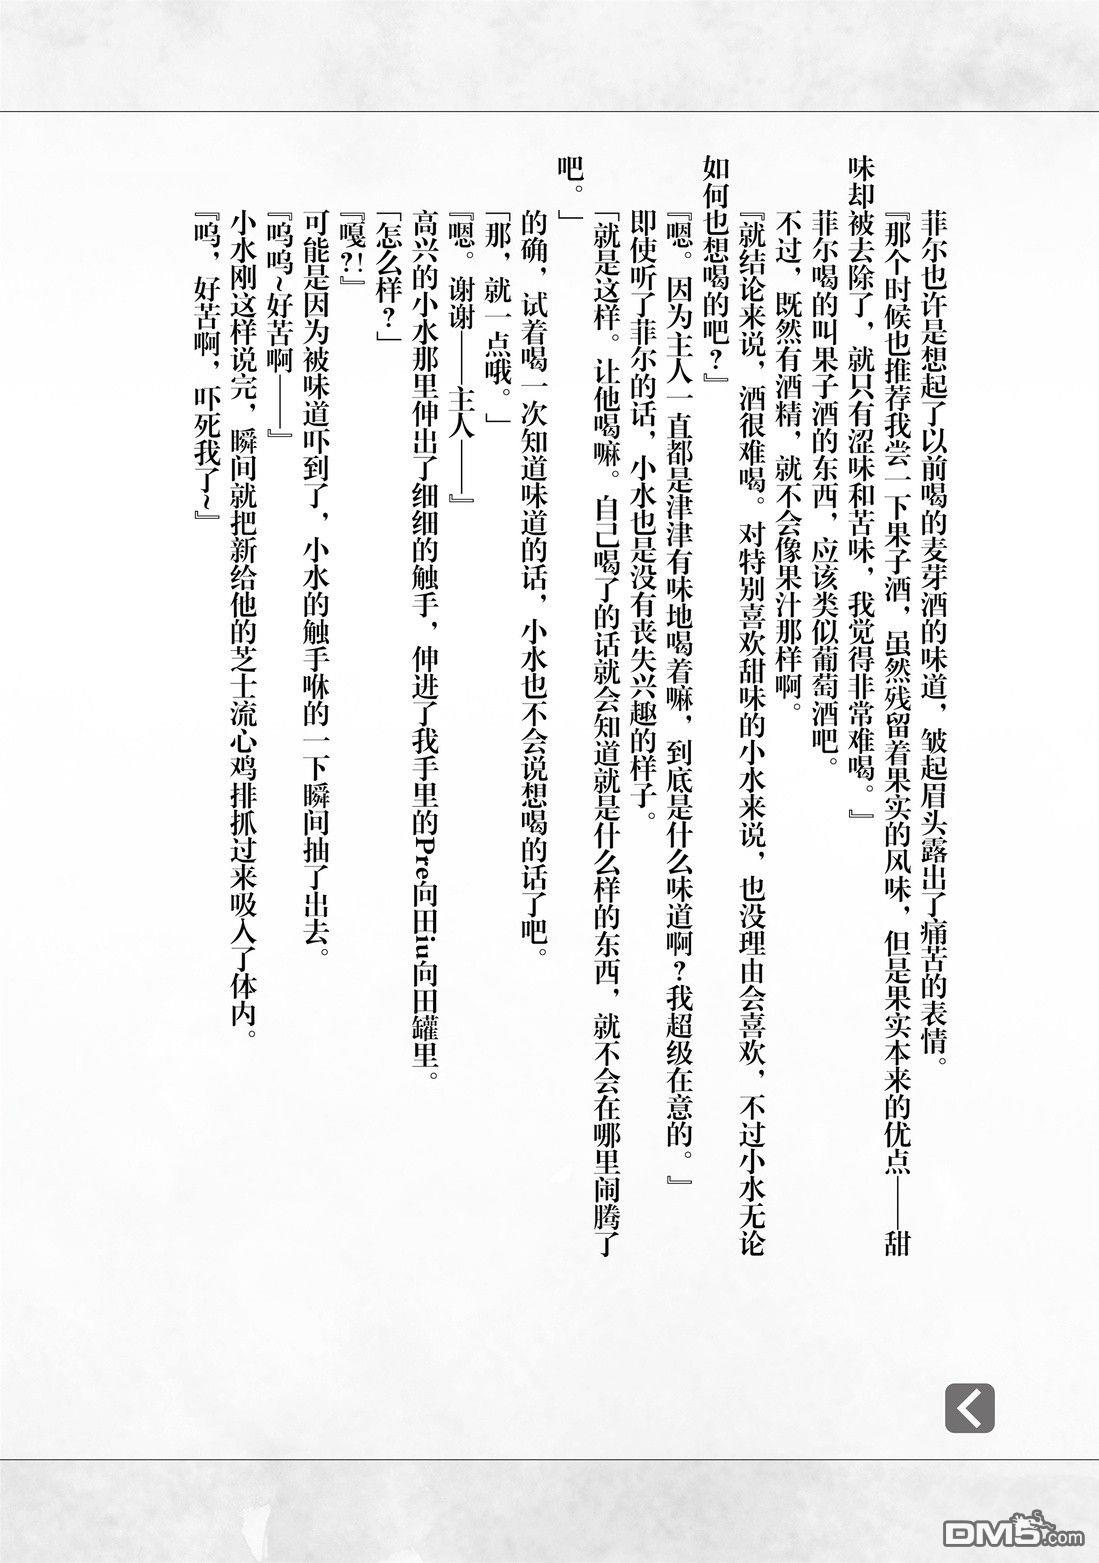 菲尔也许是想起了以前喝的麦芽酒的味道，皱起眉头露出了痛苦的表情。
『那个时候也推荐我尝一下果子酒，虽然残留着果实的风味，但是果实本来的优点——甜
味却被去除了，就只有涩味和苦味，我觉得非常难喝。』
菲尔喝的叫果子酒的东西，应该类似葡萄酒吧。
不过，既然有酒精，就不会像果汁那样啊。
『就结论来说，酒很难喝。对特别喜欢甜味的小水来说，也没理由会喜欢，不过小水无论
如何也想喝的吧？』
『嗯。因为主人一直都是津津有味地喝着嘛，到底是什么味道啊？我超级在意的。』
即使听了菲尔的话，小水也是没有丧失兴趣的样子。
「就是这样。让他喝嘛。自己喝了的话就会知道就是什么样的东西，就不会在哪里闹腾了
吧。」
的确，试着喝一次知道味道的话，小水也不会说想喝的话了吧。
「那，就一点哦。」
『嗯。谢谢——主人——』
高兴的小水那里伸出了细细的触手，伸进了我手里的Pre向田iu向田罐里。
「怎么样？」
『嘎?!』
可能是因为被味道吓到了，小水的触手咻的一下瞬间抽了出去。
『呜呜~好苦啊——』
小水刚这样说完，瞬间就把新给他的芝士流心鸡排抓过来吸入了体内。
『呜，好苦啊，吓死我了~』
DM5.com